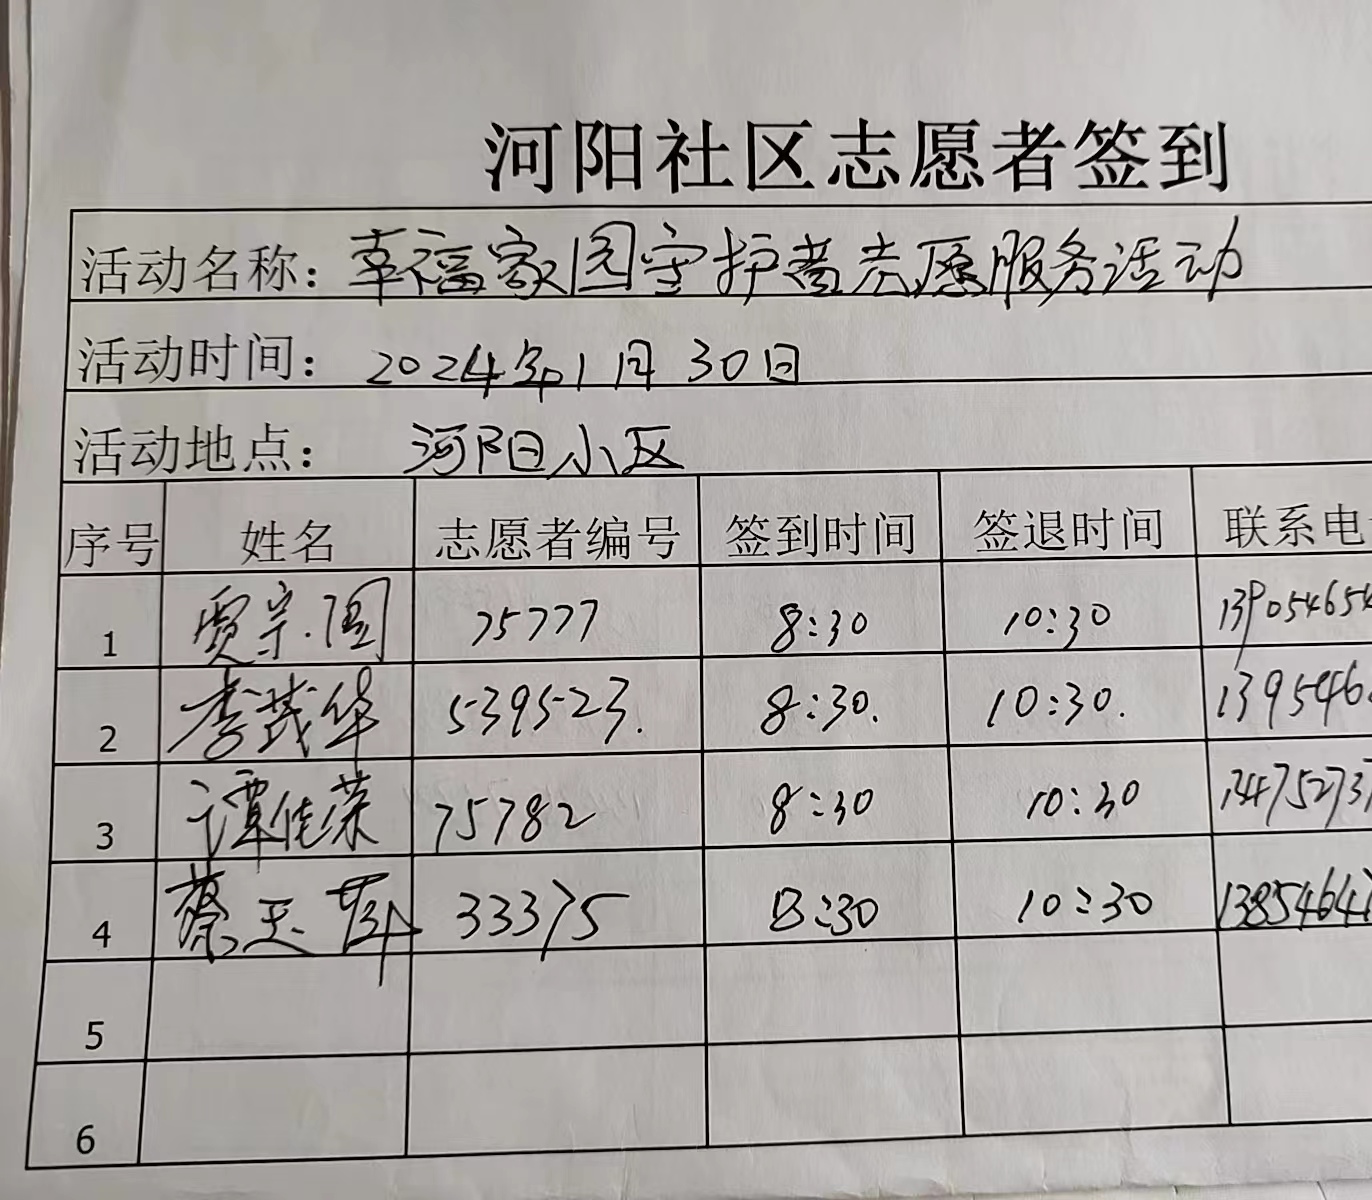 河阳社区志愿者签到
活动名称：幸福家园守护者志愿服务活动
活动时间：2024年1月30日
活动地点：河阳小区
序号 姓名 志愿者编号 签到时间 签退时间 联系电
1 贾宗国 75777 8:30 10:30 139054654
2 李茂华 539523. 8:30. 10:30. 139546
3 谭佳荣 75782 8:30 10:30 14752737
4 蔡天 33375 8:30 10:30 13854647
5
6